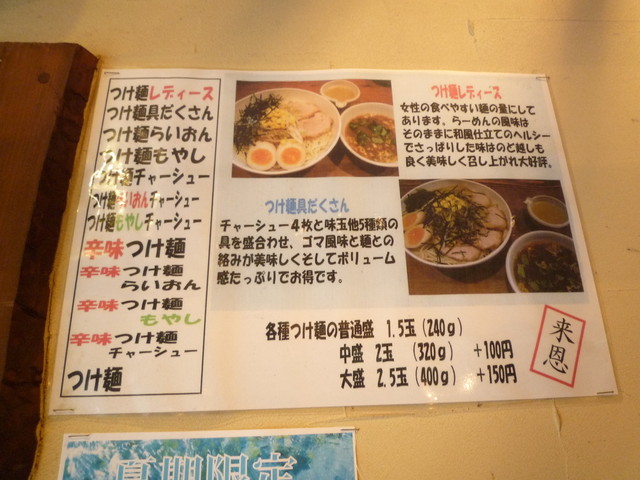 つけ麺レディース
つけ麺具だくさん
つけ麺らいおん
つけ麺もやし
つけ麺チャーシュー
つけ麺らいおんチャーシュー
つけ麺もやしチャーシュー
辛味つけ麺
辛味つけ麺
らいおん
辛味つけ麺
もやし
辛味つけ麺
チャーシュー
つけ麺
つけ麺レディース
女性の食べやすい麺の量にして
あります。らーめんの風味は
そのままに和風仕立てのヘルシー
でさっぱりした味はのど越しも
良く美味しく召し上がれ大好評。
つけ麺具だくさん
チャーシュー4枚と味玉他5種類の
具を盛合わせ、ゴマ風味と麺との
絡みが美味しくそしてボリューム
感たっぷりでお得です。
各種つけ麺の普通盛 1.5玉(240g)
中盛 2玉 (320g) +100円
大盛 2.5玉(400g) +150円
来恩
夏期限定